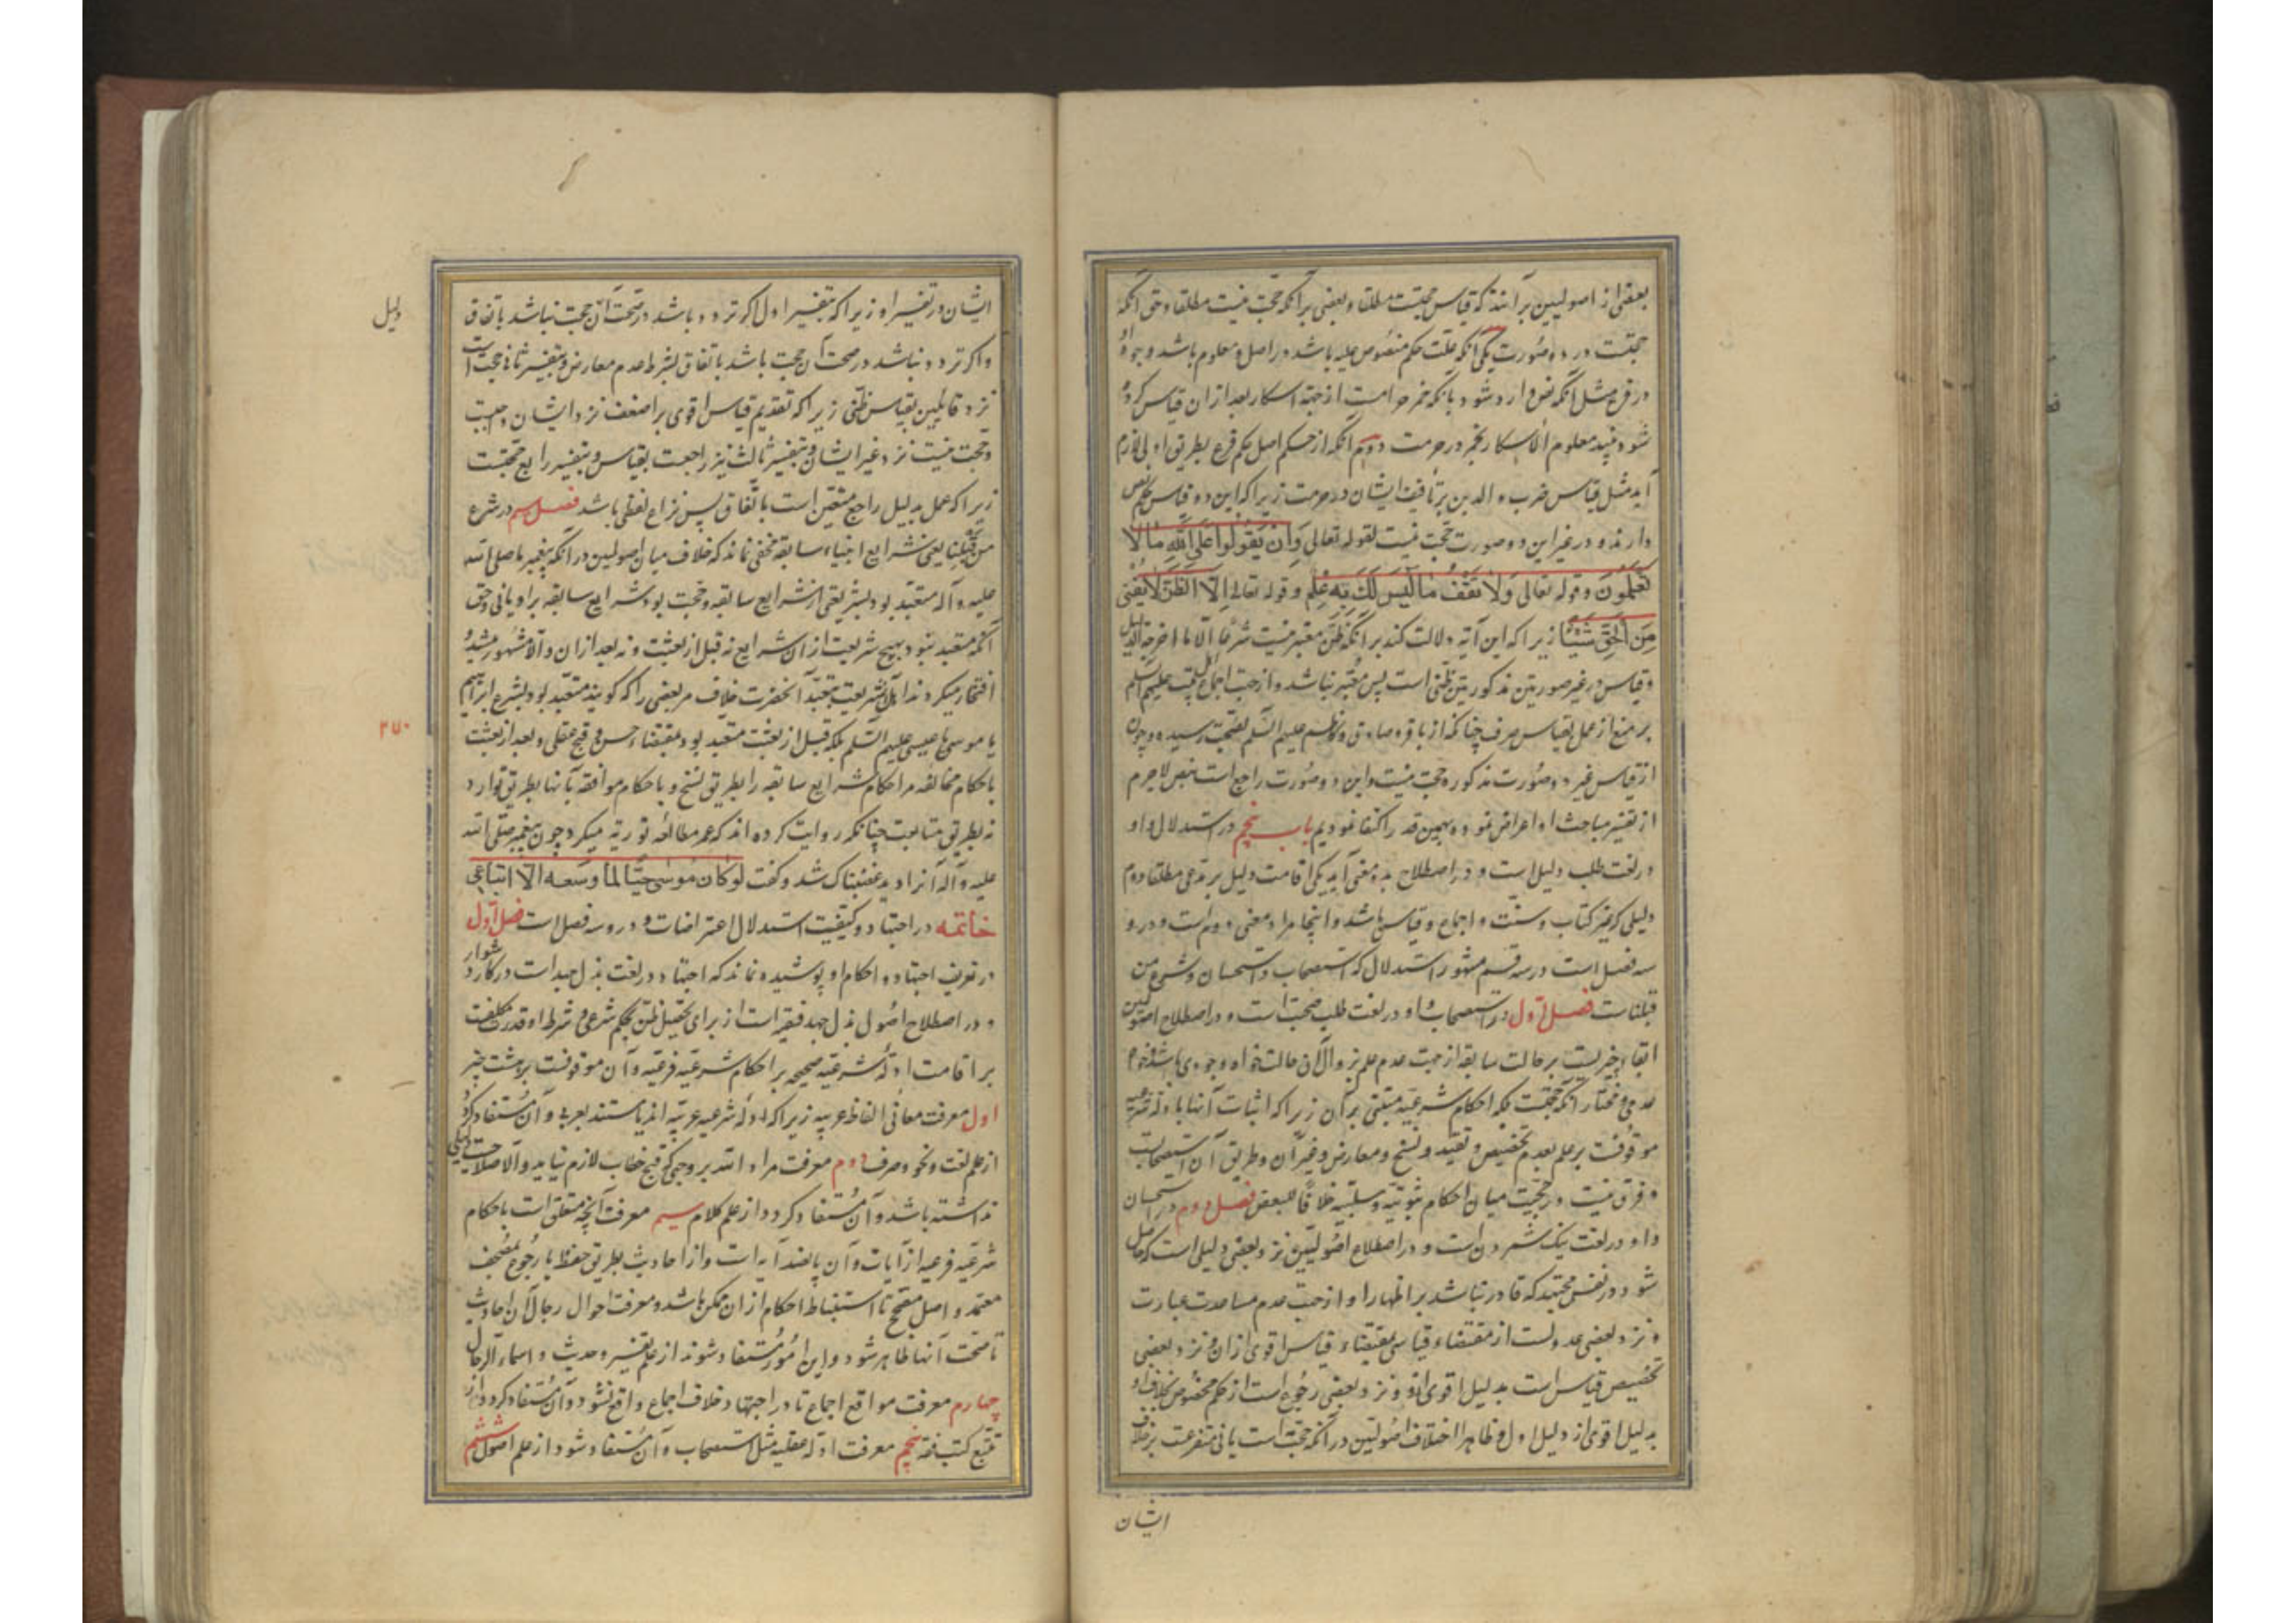 بعضی از اصولیین برآنند که قیاس حجتست مطلقا و بعضی برآنکه حجت نیست مطلقا و حق آنکه
حجتست در دو صورت یکی آنکه علت حکم منصوص علیه باشد در اصل و معلوم باشد وجود او
در فرع مثل آنکه نص وارد شود بآنکه خمر حرامست از جهة اسکار بعد از ان قیاس کرده
شود نبیذ معلوم الاسکار بخمر در حرمت دوم آنکه از حکم اصل حکم فرع بطریق اولی لازم
آید مثل قیاس ضرب والدین بر تأفیف ایشان در حرمت زیرا که این دو قیاس حکم نص
دارند و در غیر این دو صورت حجت نیست لقوله تعالی وَاَنْ یَقُولُوا عَلَی اللهِ مٰا لٰا
تَعْلَمُونَ و قوله تعالی وَلٰا تَقْفُ مٰا لَیْسَ لَکَ بِهِ عِلْم و قوله تعالی اِلّا الظَنَّ لٰا یُغْنی
مِنَ الْحَقِّ شَیْئًا زیرا که این آیه دلالت کند برآنکه ظن معتبر نیست شرعًا الّا ما اخرجه الدلیل
و قیاس در غیر صورتین مذکورتین ظنی است پس معتبر نباشد و از جهت اجماع اهل بیت علیهم السلم
بر منع از عمل بقیاس صرف چنانکه از باقر و صادق و کاظم علیهم السلم بصحت رسیده و چون
از قیاس غیر دو صورت مذکوره حجت نیست و این دو صورت راجع است بنص لاجرم
از تفسیر مباحث او اعراض نموده بهمین قدر اکتفا نمودیم باب پنجم در استدلال و او
در لغت طلب دلیل است و در اصطلاح بدو معنی آید یکی اقامت دلیل بر مدعی مطلقا دوم
دلیلی که غیر کتاب و سنّت و اجماع و قیاس باشد و اینجا مراد معنی دوم است و درو
سه فصل است در سه قسم مشهور استدلال که استصحاب و استحسان و شرع من
قبلناست فصل اول در استصحاب و او در لغت طلب صحبت است و در اصطلاح اصولیین
ابقاء چیزیست بر حالت سابقه از جهت عدم علم بزوال آن حالت خواه وجودی باشد خواه
عدمی و مختار آنکه حجتست بلکه احکام شرعیّه مبتنی برآن زیرا که اثبات آنها بادله شرعیه
موقوفست بر علم بعدم تخصیص و تقیید و نسخ و معارض و غیر آن و طریق آن استصحابست
و فرق نیست در حجیّت میان احکام ثبوتیّه و سلبیّه خلافًا للبعض فصل دوم در استحسان
و او در لغت نیک شمردن است و در اصطلاح اصولیین نزد بعضی دلیلی است که حاصل
شود در نفس مجتهد که قادر نباشد بر اظهار او از جهت عدم مساعدت عبارت
و نزد بعضی عدولست از مقتضاء قیاسی بمقتضاء قیاس اقوی ازان و نزد بعضی
تخصیص قیاس است بدلیل اقوی ازو و نزد بعضی رجوع است از حکم مخصوص بخلاف او
بدلیل اقوی از دلیل اول و ظاهرا اختلاف اصولیین در آنکه حجت است یا نی متفرعست بر خلاف
ایشان
ایشان در تفسیر او زیرا که بتفسیر اول اگر تردد باشد در صحت آن حجت نباشد باتفاق
و اگر تردد نباشد در صحت آن حجت باشد باتفاق بشرط عدم معارض و بتفسیر ثانی حجت است
نزد قایلین بقیاس ظنی زیرا که تقدیم قیاس اقوی بر اضعف نزد ایشان واجبست
و حجت نیست نزد غیر ایشان و بتفسیر ثالث نیز راجعست بقیاس و بتفسیر رابع حجتست
زیرا که عمل بدلیل راجح متعین است باتّفاق پس نزاع لفظی باشد فصل سیم در شرع
من قبلنا یعنی شرایع انبیاء سابقه مخفی نماند که خلاف میان اصولیین در آنکه پیغمبر ما صلی الله
علیه و آله متعبد بود بشریعتی از شرایع سابقه و حجت بود شرایع سابقه بر او یا نی و حق
آنکه متعبد نبود بهیچ شریعت از ان شرایع نه قبل از بعثت و نه بعد ازان و الا مشهور میشد و
افتخار میکردند اهل آن شریعت بتعبد آنحضرت خلاف مر بعضی را که گویند متعبد بود بشرع ابراهیم
یا موسی یا عیسی علیهم السلم بلکه قبل از بعثت متعبد بود بمقتضاء حسن و قبح عقلی و بعد از بعثت
باحکام مخالفه مر احکام شرایع سابقه را بطریق نسخ و باحکام موافقه بآنها بطریق توارد
نه بطریق متابعت چنانکه روایت کرده اند که عمر مطالعه توریه میکرد چون پیغمبر صلی الله
علیه و آله آنرا دید غضبناک شد و گفت لو کان موسی حیّا لما وسعه الّا اتباعی
خاتمه در اجتهاد و کیفیت استدلال اعتراضات و درو سه فصل است فصل اول
در تعریف اجتهاد و احکام او پوشیده نماند که اجتهاد در لغت بذل جهد است در کار دشوار
و در اصطلاح اصول بذل جهد فقیه است از برای تحصیل ظن بحکم شرعی و شرط او قدرت مکلفست
بر اقامت ادلّه شرعیّه صحیحه بر احکام شرعیّه فرعیّه و آن موقوفست بر هشت چیز
اول معرفت معانی الفاظ عربیه زیرا که ادله شرعیه عربیّه اند یا مستند بعربی و آن مستفاد گردد
از علم لغت و نحو و صرف دوم معرفت مراد الله بر وجهی که قبح خطاب لازم نیاید و الا صلاحیت دلیلی
نداشته باشد و آن مستفاد گردد از علم کلام سیم معرفت آنچه متعلق است باحکام
شرعیّه فرعیه از آیات و آن پانصد آیه است و از احادیث بطریق حفظ یا رجوع بمصحف
معتمد و اصل مصحح تا استنباط احکام از ان ممکن باشد و معرفت احوال رجال آن احادیث
تا صحت آنها ظاهر شود و این امور مستفاد شوند از علم تفسیر و حدیث و اسماء الرجال
چهارم معرفت مواقع اجماع تا در اجتهاد خلاف اجماع واقع نشود و آن مستفاد گردد از
تتبع کتب فقه پنجم معرفت ادله عقلیه مثل استصحاب و آن مستفاد شود از علم اصول ششم
دلیل
۳۷۰